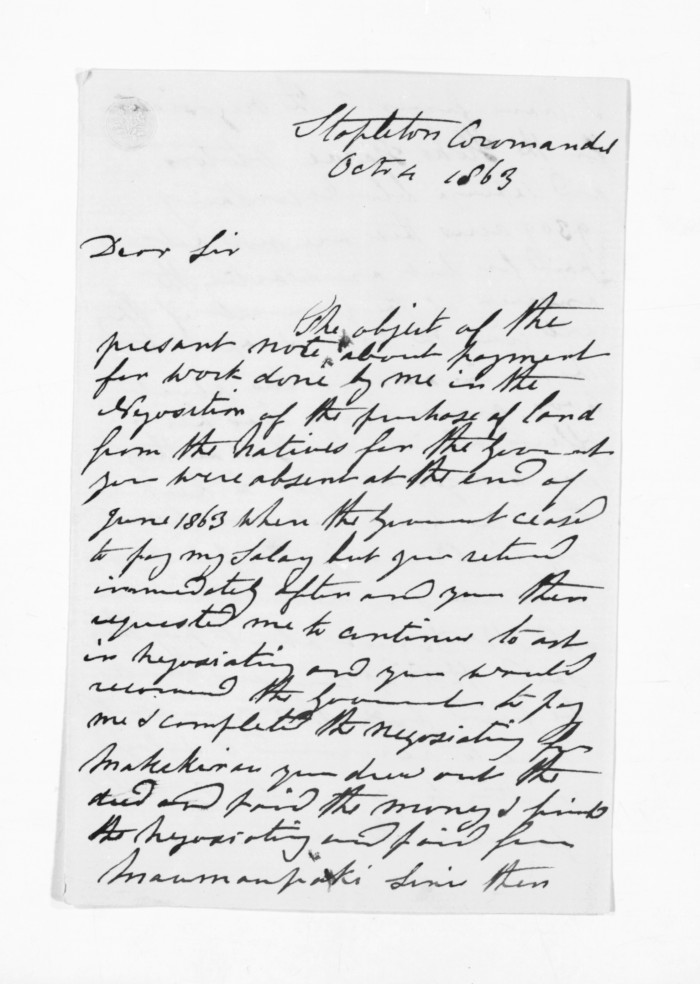 Stapleton Coromandel
Octr 4 1863
Dear Sir
The object of the
presant note about payment
for work done by me in the
Negosition of the purchase of land
from the Natives for the Goverment
you were absent at the end of
June 1863 when the Goverment ceased
to pay my Salary but you returnd
immediately after and you then
requested me to continue to act
in Negosiating and you would
recomend the Goverment to pay
me I completed the negosiating for
you drew out the
deed and paid the money I finishd
the Negosiating and paid for
Since then